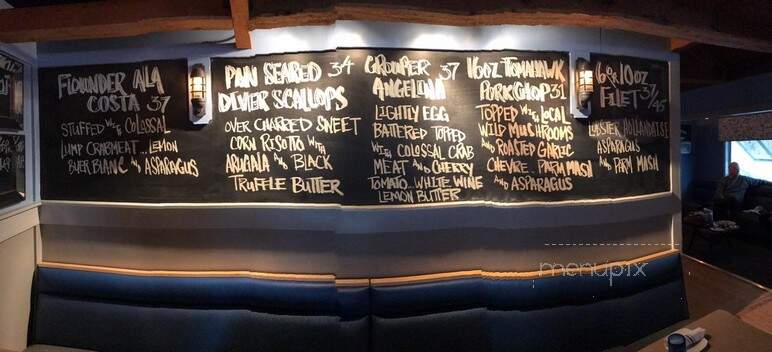 FLOUNDER ALA
COSTA 37
STUFFED WITH COLOSSAL
LUMP CRABMEAT... LEMON
BUER BLANC AND ASPARAGUS
PAN SEARED 34
DIVER SCALLOPS
OVER CHARRED SWEET
CORN RISOTTO WITH
ARUGALA AND BLACK
TRUFFLE BUTTER
GROUPER 37
ANGELINA
LIGHTLY EGG
BATTERED TOPPED
WITH COLOSSAL CRAB
MEAT AND CHERRY
TOMATO... WHITE WINE
LEMON BUTTER
16OZ TOMAHAWK
PORK CHOP 31
TOPPED WITH LOCAL
WILD MUSHROOMS
AND ROASTED GARLIC
CHEVRE... PARM MASH
AND ASPARAGUS
6 OR 10OZ
FILET 37/45
LOBSTER HOLLANDAISE
ASPARAGUS
AND PARM MASH
menupix